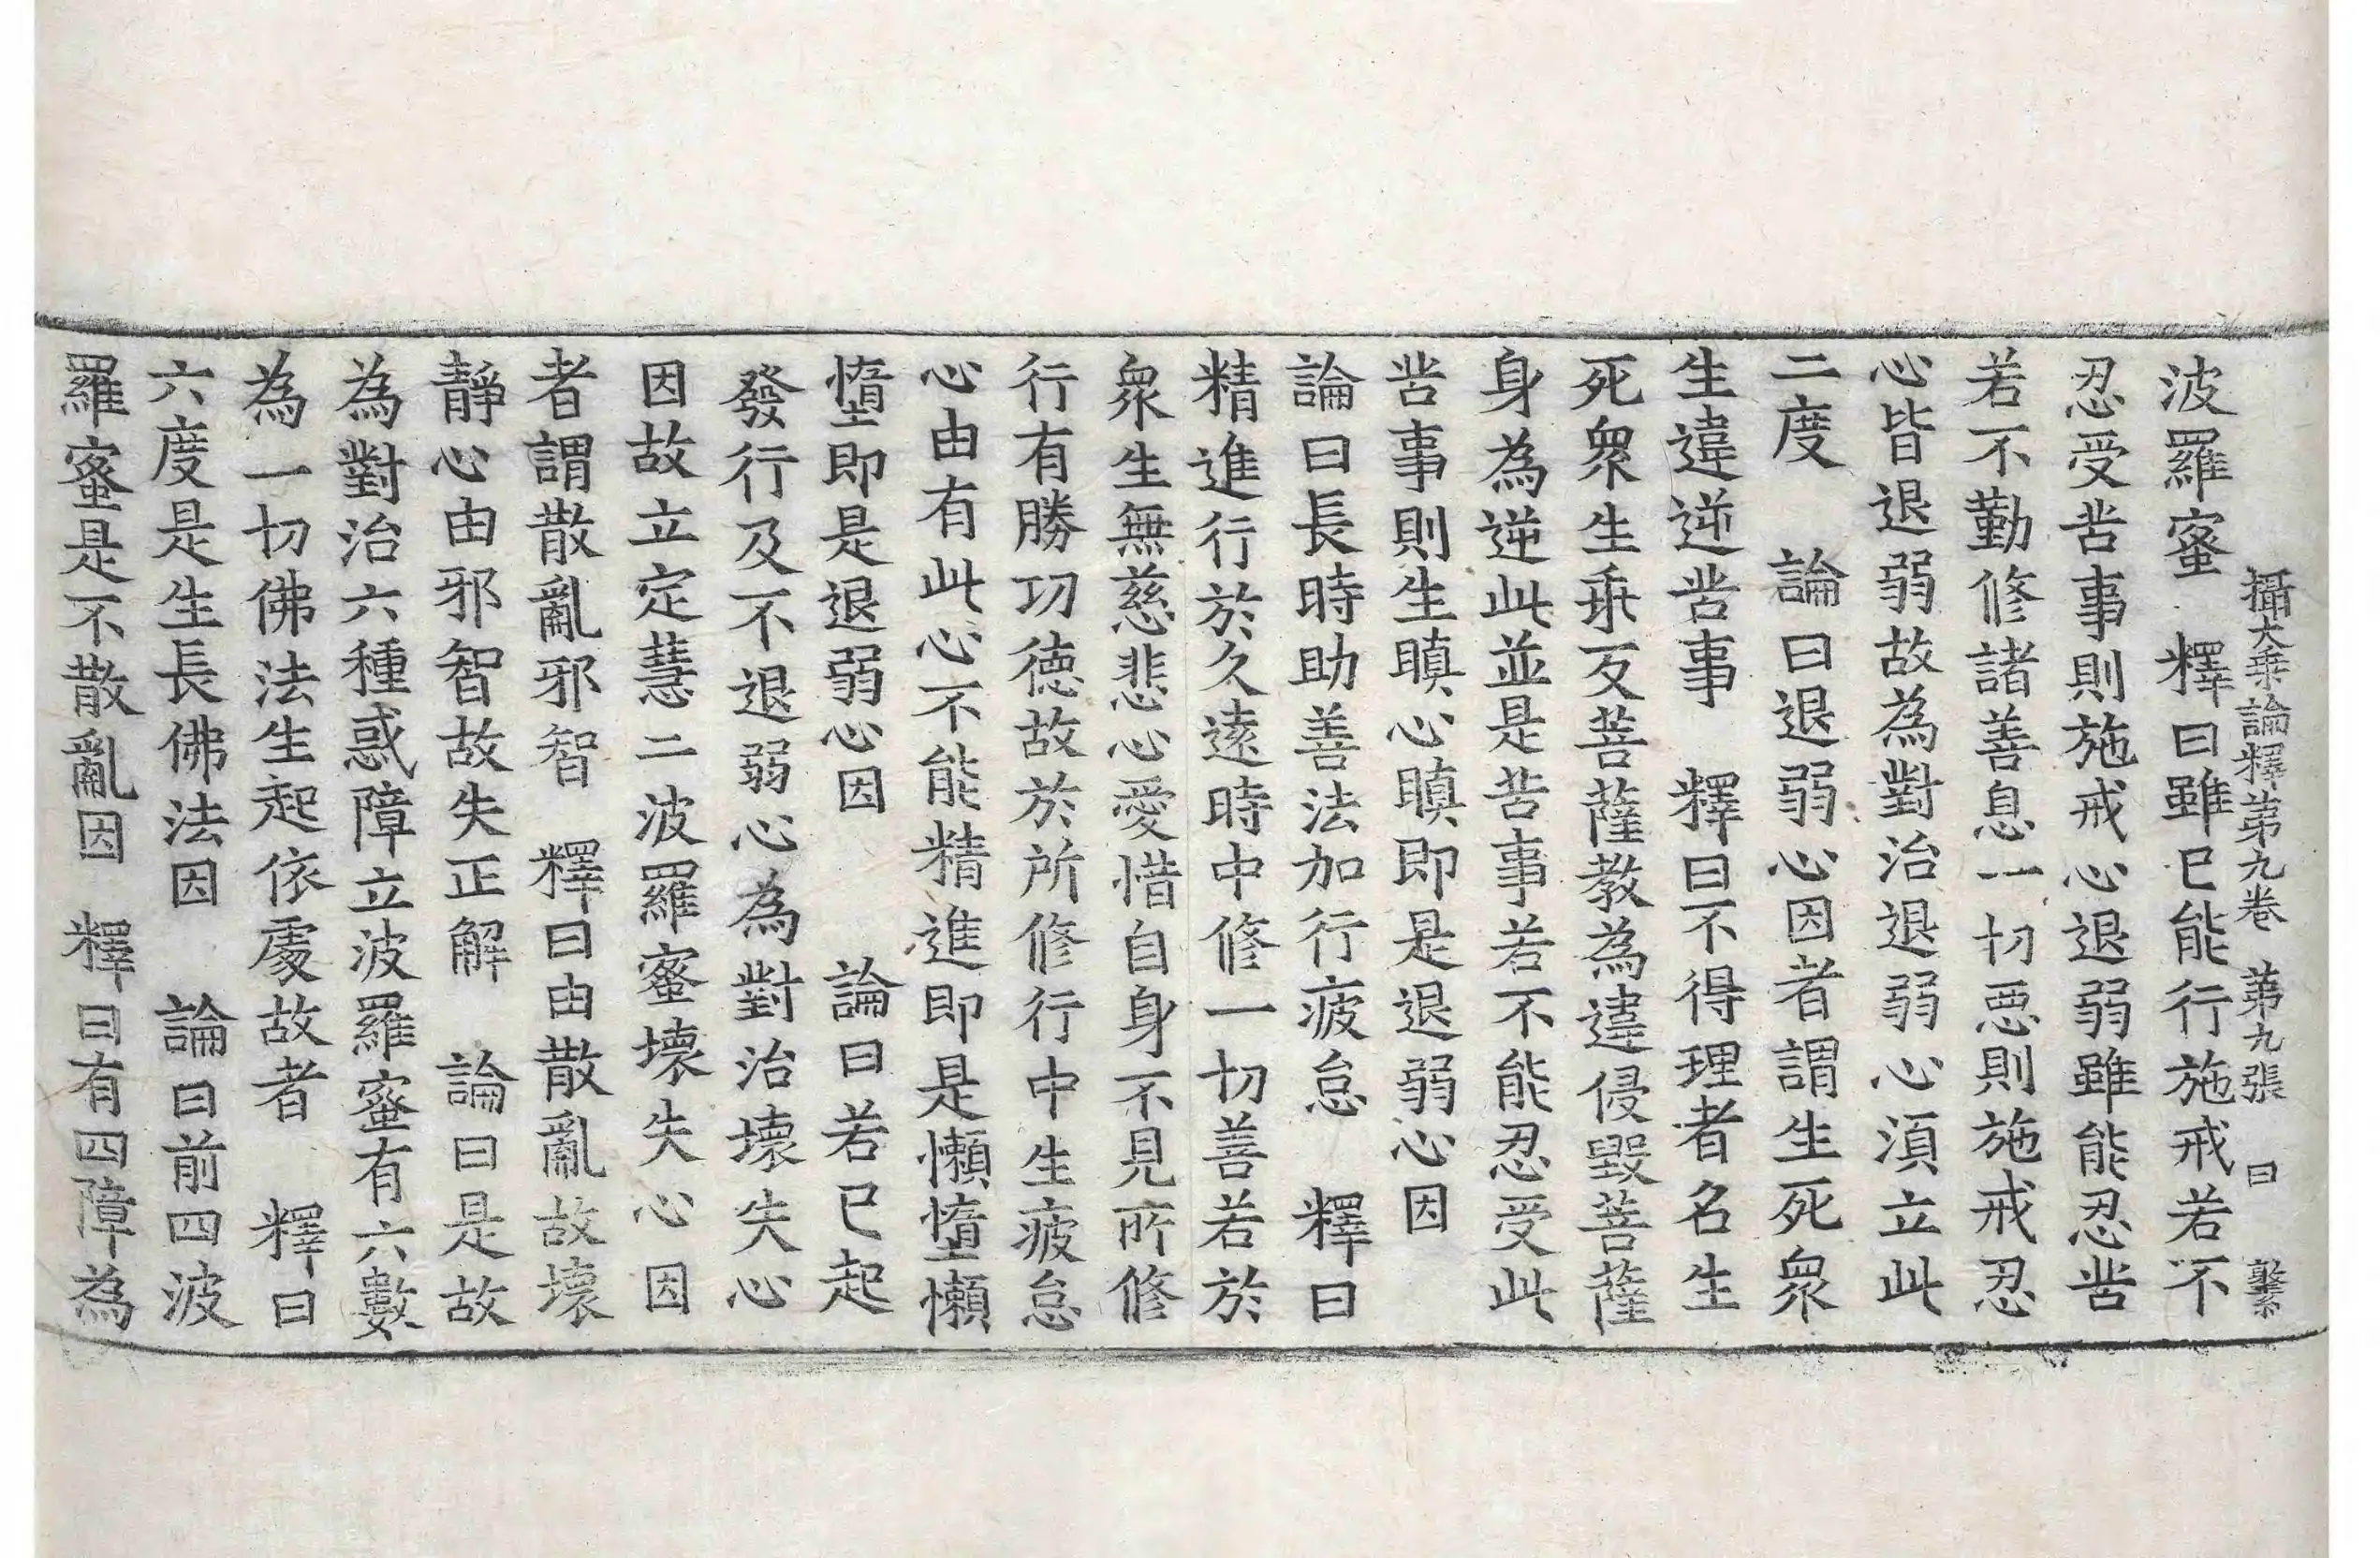 攝大乘論釋第九卷　第九張　曰　鼜
波羅蜜　釋曰雖已能行施戒若不
忍受苦事則施戒心退弱雖能忍苦
若不勤修諸善息一切惡則施戒忍
心皆退弱故為對治退弱心須立此
二度　論曰退弱心因者謂生死衆
生違逆苦事　釋曰不得理者名生
死衆生乖反菩薩教為違侵毀菩薩
身為逆此並是苦事若不能忍受此
苦事則生瞋心瞋即是退弱心因
論曰長時助善法加行疲怠　釋曰
精進行於久遠時中修一切善若於
衆生無慈悲心愛惜自身不見所修
行有勝功德故於所修行中生疲怠
心由有此心不能精進即是懶墮懶
墮即是退弱心因　論曰若已起
發行及不退弱心為對治壞失心
因故立定慧二波羅蜜壞失心因
者謂散亂邪智　釋曰由散亂故壞
靜心由邪智故失正解　論曰是故
為對治六種惑障立波羅蜜有六數
為一切佛法生起依處故者　釋曰
六度是生長佛法因　論曰前四波
羅蜜是不散亂因　釋曰有四障為